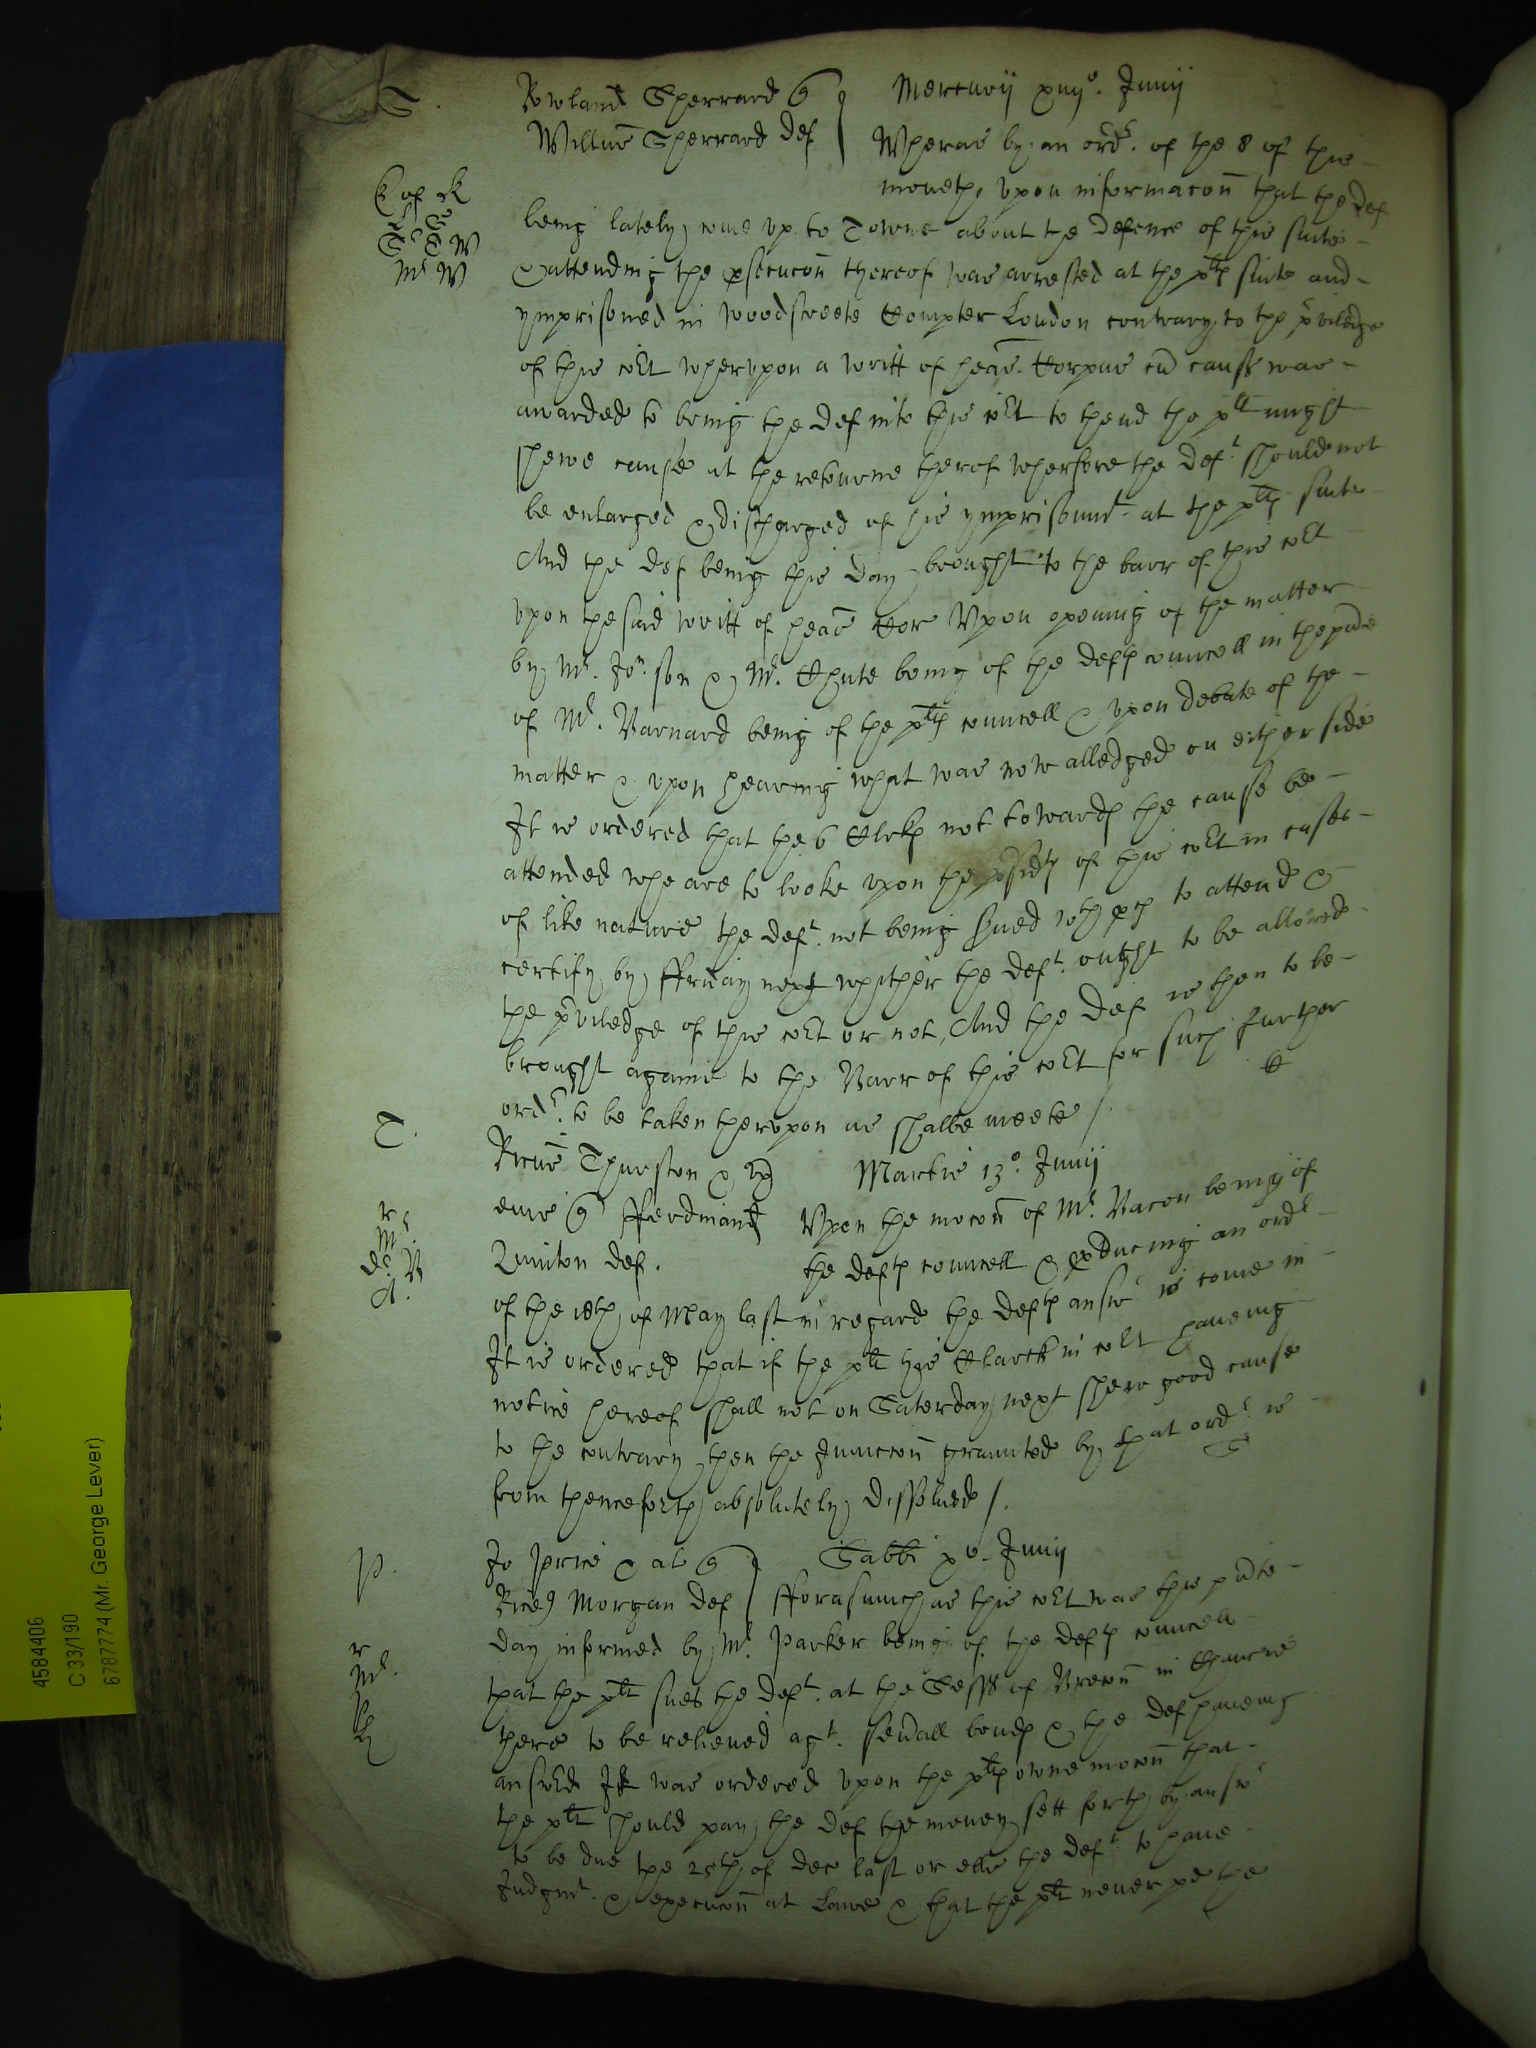 S.
Rowland Sherrard q
Willms Sherrard def
Mercurij xiiijo. Junij
Wheras by an ordr. of the 8 of this
moneth, vpon informacon that the def
being lately come vp to Towne about the defence of this suite
& attending the psecucon thereof was arrested at the plts suite and
ymprisoned in Woodstreete Compter London contrary to the priviledge
of this Cort wherupon a writt of heas. Corpus cu causa was
awarded to bring the def into this Cort to thend the plt might
shewe cause at the retourne therof wherfore the deft. should not
be enlarged & discharged of his ymprisonmt. at the plts suite
And the def being this day brought to the barr of this Cort
vpon the said writt of heas Cor Vpon opening of the matter
by Mr. Jonson & Mr. Chute being of the defts councell in the pnce
of Mr. Barnard being of the plts councell & vpon debate of the
matter & vpon hearing what was now alledged on either side
It is ordered that the 6 Clrks not towards the cause be
attended who are to looke vpon the psidts of this Cort in cases
of like nature the deft. not being sued wth to attend &
certify by ffriday next whither the deft. ought to be allowed
the priviledge of this Cort or not, And the def is then to be
brought againe to the Barr of this Cort for such further
ordr. to be taken therupon as shalbe meete /.
T.
Ricus Thurston &
eius q fferdinand
def.
Martis 13o. Junij
Vpon the mocon of Mr. Bacon being of
the defts councell & producing an ordr
of the 18th of May last in regard the defts answr is come in
It is ordered that if the plt his Clarck in Cort haueing
notice hereof shall not on Saterday next shew good cause
to the contrary then the Iniuncon graunted by that ordr is
from thenceforth absolutely dissolued /.
P.
Jo Price & al q
Rice Morgan def
Sabbi xo. Junij
fforasmuch as this Cort was this pnte
day informed by Mr. Parker being of the defts councell
that the plt sues the deft. at the Sesss of Brecon in Chancrie
there to be relieued agt. seuall bonds & the def haueing
answed It was ordered vpon the plts owne mocon that
the plt should pay the def the money sett forth by answr
to be due the 25th of Dec last or else the deft. to haue
Judgmt. & execucon at Lawe & that the plt neuer the
4584406
C 33/190
6787774 (Mr. George Lever)